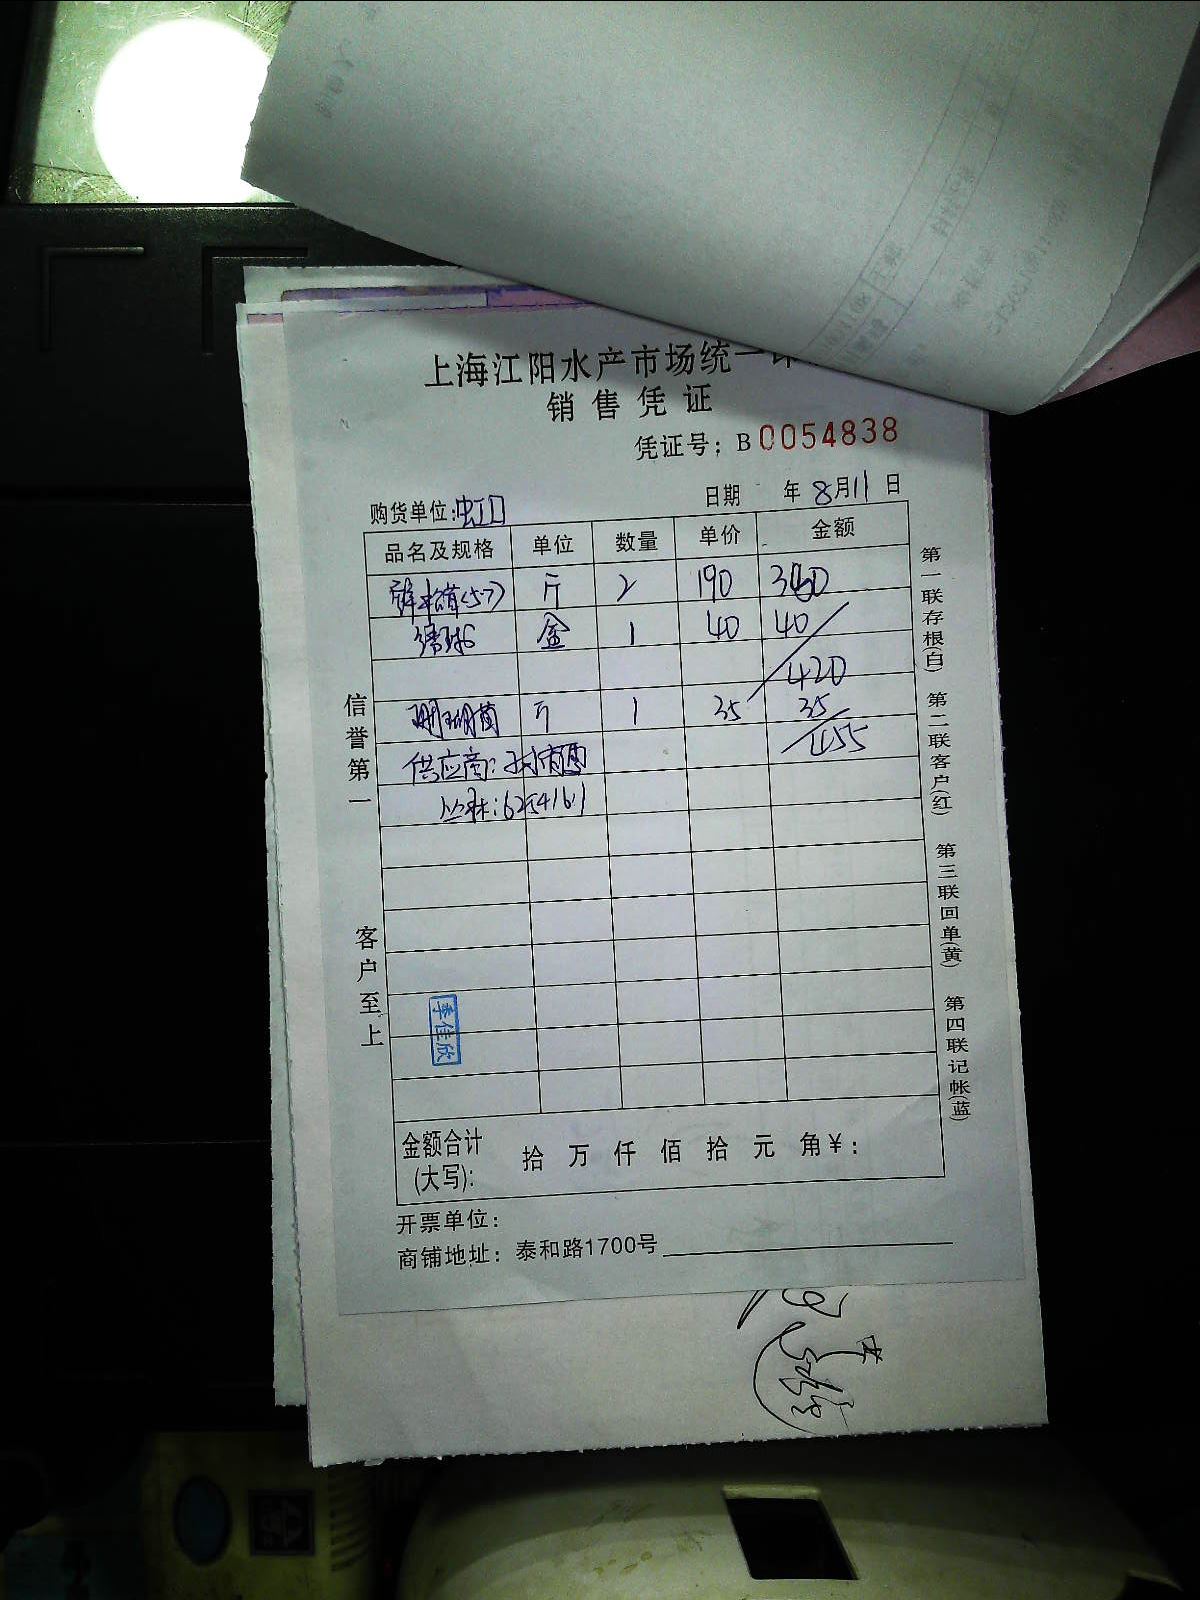 上海江阳水产市场统一印
销售凭证
凭证号：B0054838
购货单位：虹口 日期 年8月11日
品名及规格 单位 数量 单价 金额
(57) 斤 2 190 380
绣球 盒 1 40 40
420
珊瑚菌 斤 1 35 35
455
供应商：
丛林：6254161
信誉第一
客户至上
第一联存根(白) 第二联客户(红) 第三联回单(黄) 第四联记帐(蓝)
季佳欣
金额合计(大写)： 拾 万 仟 佰 拾 元 角 ¥：
开票单位：
商铺地址：泰和路1700号